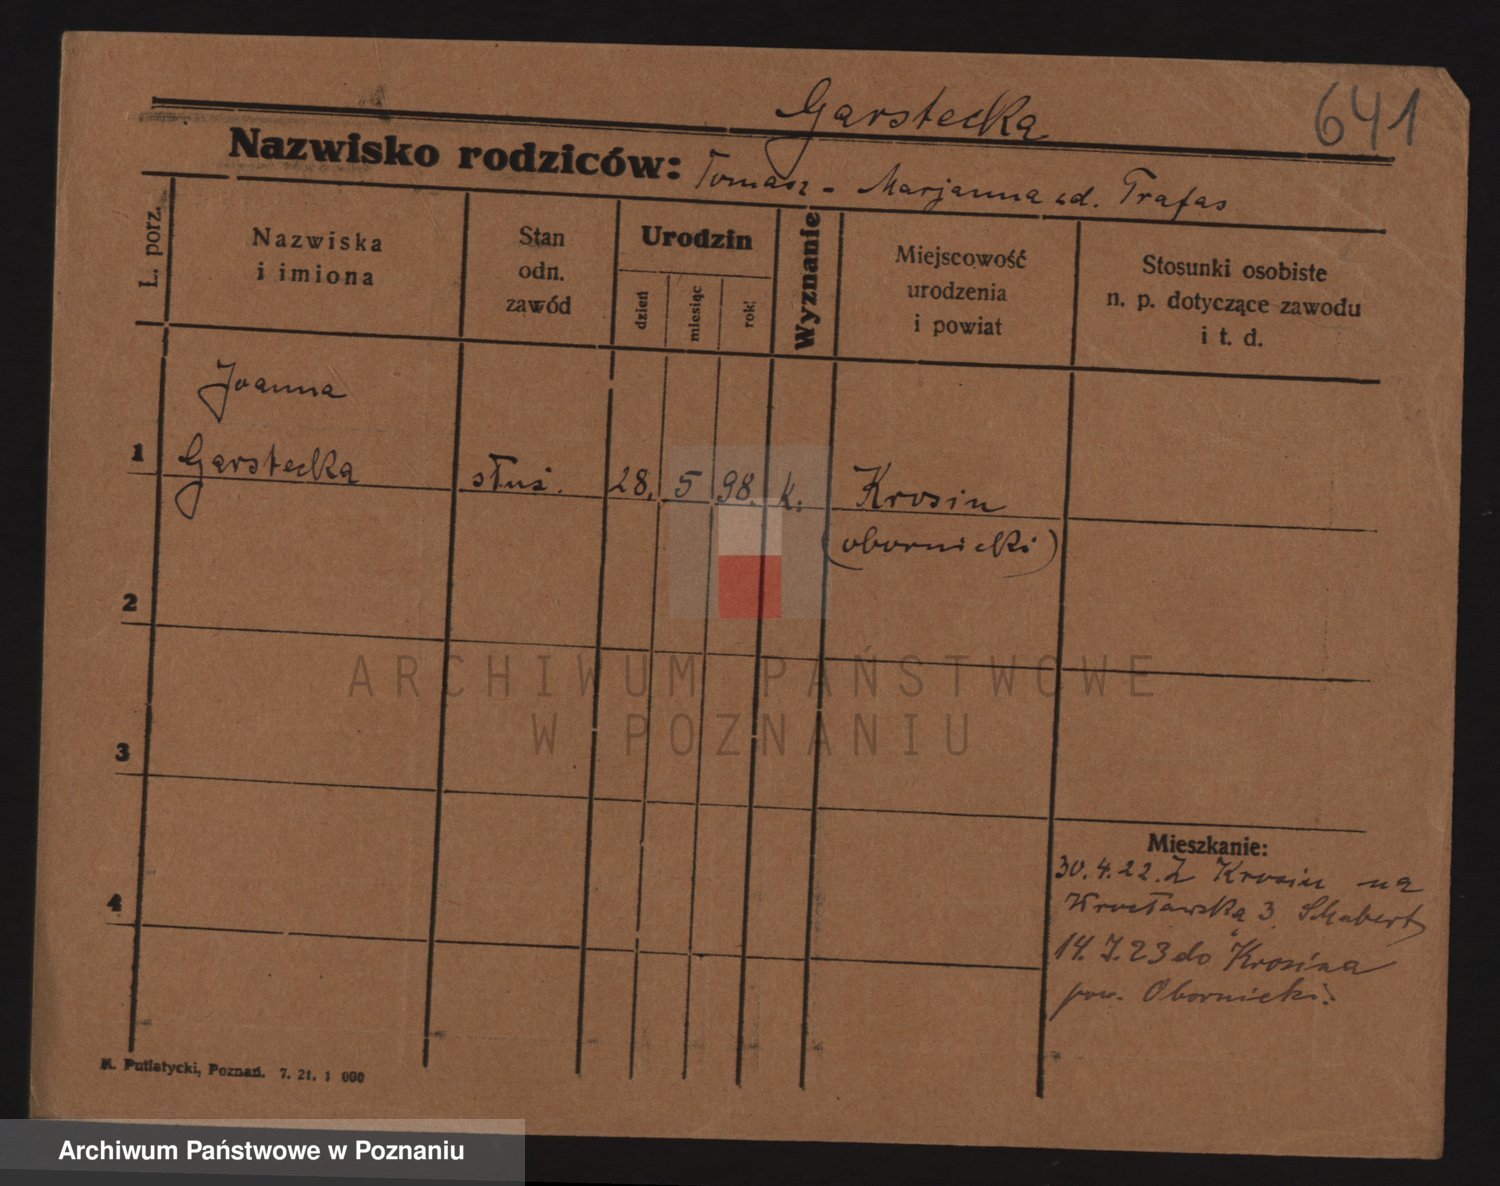 641
Garstecka
Nazwisko rodziców: Tomasz - Marjanna zd. Trafas
L. porz.
Nazwiska
i imiona
Stan
odn.
zawód
Urodzin
dzień
miesiąc
rok
Wyznanie
Miejscowość
urodzenia
i powiat
Stosunki osobiste
n. p. dotyczące zawodu
i t. d.
Joanna
1 Garstecka służ. 28. 5 98. k. Krosin
(obornicki)
2
3
4
Mieszkanie:
30.4.22. Z Krosin na
Wrocławską 3 Schubert
14.7.23 do Krosina
pow. Obornicki.
K. Putiatycki, Poznań. 7. 21. 1 000
ARCHIWUM PAŃSTWOWE
W POZNANIU
Archiwum Państwowe w Poznaniu